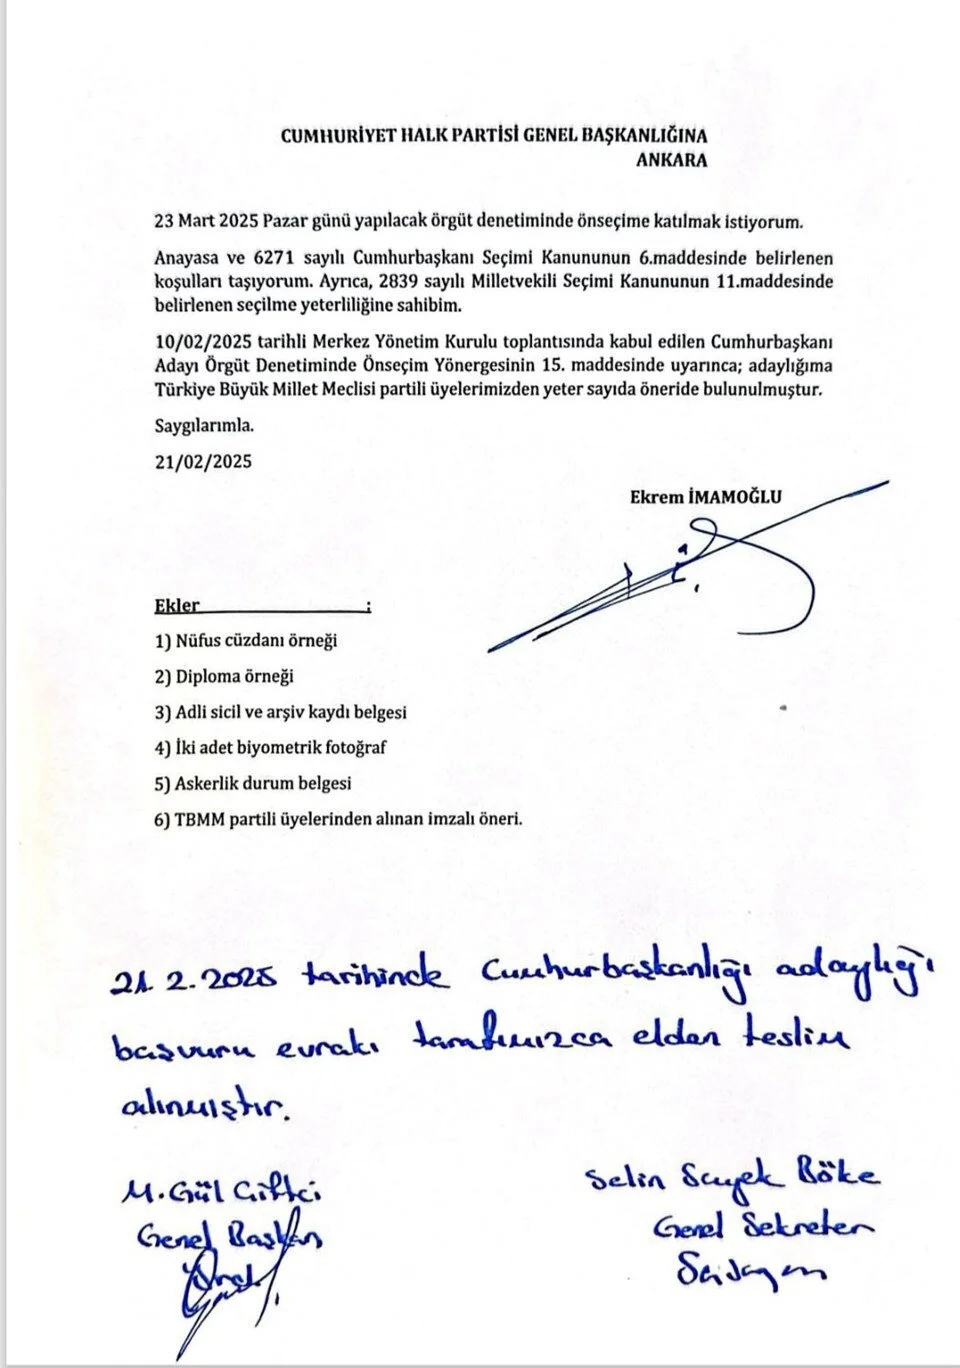 CUMHURİYET HALK PARTİSİ GENEL BAŞKANLIĞINA
ANKARA
23 Mart 2025 Pazar günü yapılacak örgüt denetiminde önseçime katılmak istiyorum.
Anayasa ve 6271 sayılı Cumhurbaşkanı Seçimi Kanununun 6.maddesinde belirlenen
koşulları taşıyorum. Ayrıca, 2839 sayılı Milletvekili Seçimi Kanununun 11.maddesinde
belirlenen seçilme yeterliliğine sahibim.
10/02/2025 tarihli Merkez Yönetim Kurulu toplantısında kabul edilen Cumhurbaşkanı
Adayı Örgüt Denetiminde Önseçim Yönergesinin 15. maddesinde uyarınca; adaylığıma
Türkiye Büyük Millet Meclisi partili üyelerimizden yeter sayıda öneride bulunulmuştur.
Saygılarımla.
21/02/2025
Ekrem İMAMOĞLU
Ekler :
1) Nüfus cüzdanı örneği
2) Diploma örneği
3) Adli sicil ve arşiv kaydı belgesi
4) İki adet biyometrik fotoğraf
5) Askerlik durum belgesi
6) TBMM partili üyelerinden alınan imzalı öneri.
21.2.2025 tarihinde Cumhurbaşkanlığı adaylığı
başvuru evrakı tarafımızca elden teslim
alınmıştır.
M. Gül Çiftci Selin Sayek Böke
Genel Başkan Genel Sekreter